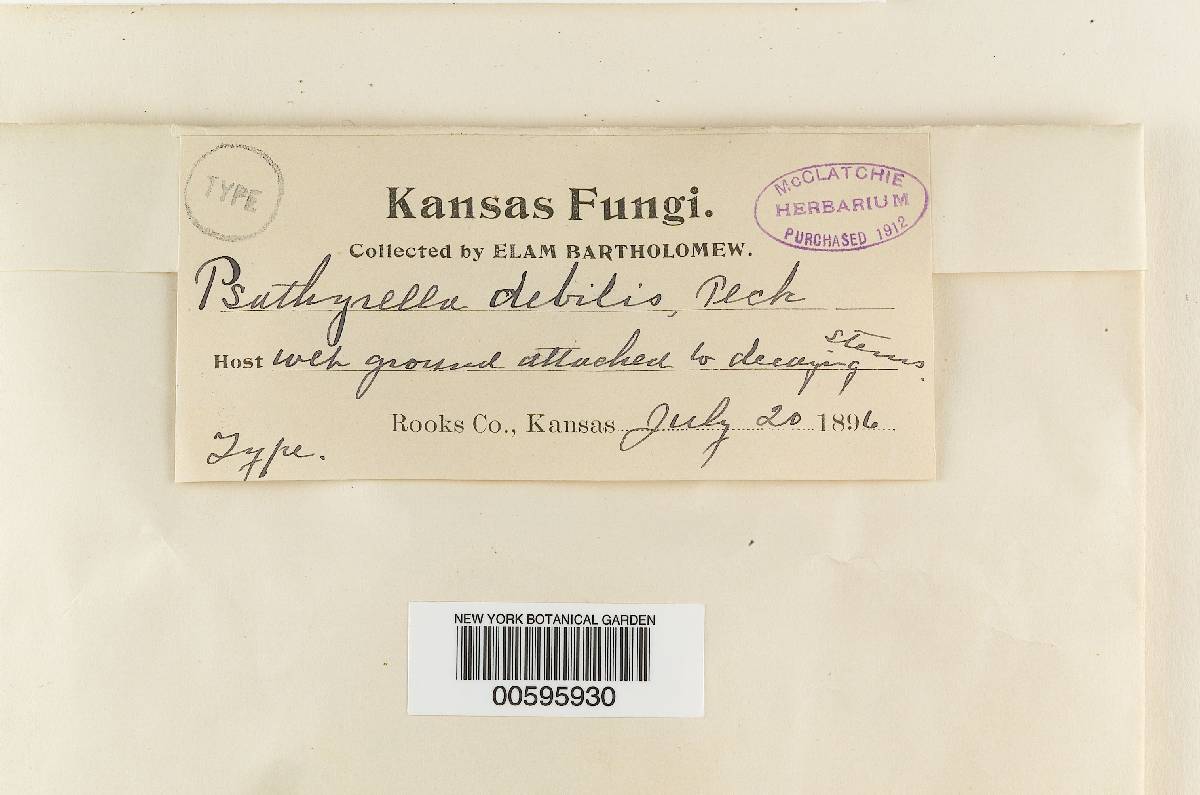 TYPE
Kansas Fungi.
McCLATCHIE
HERBARIUM
PURCHASED 1912
Collected by ELAM BARTHOLOMEW.
Psathyrella debilis, Peck
Host wet ground attached to decaying stems.
Rooks Co., Kansas July 20 1896
Type.
NEW YORK BOTANICAL GARDEN
00595930